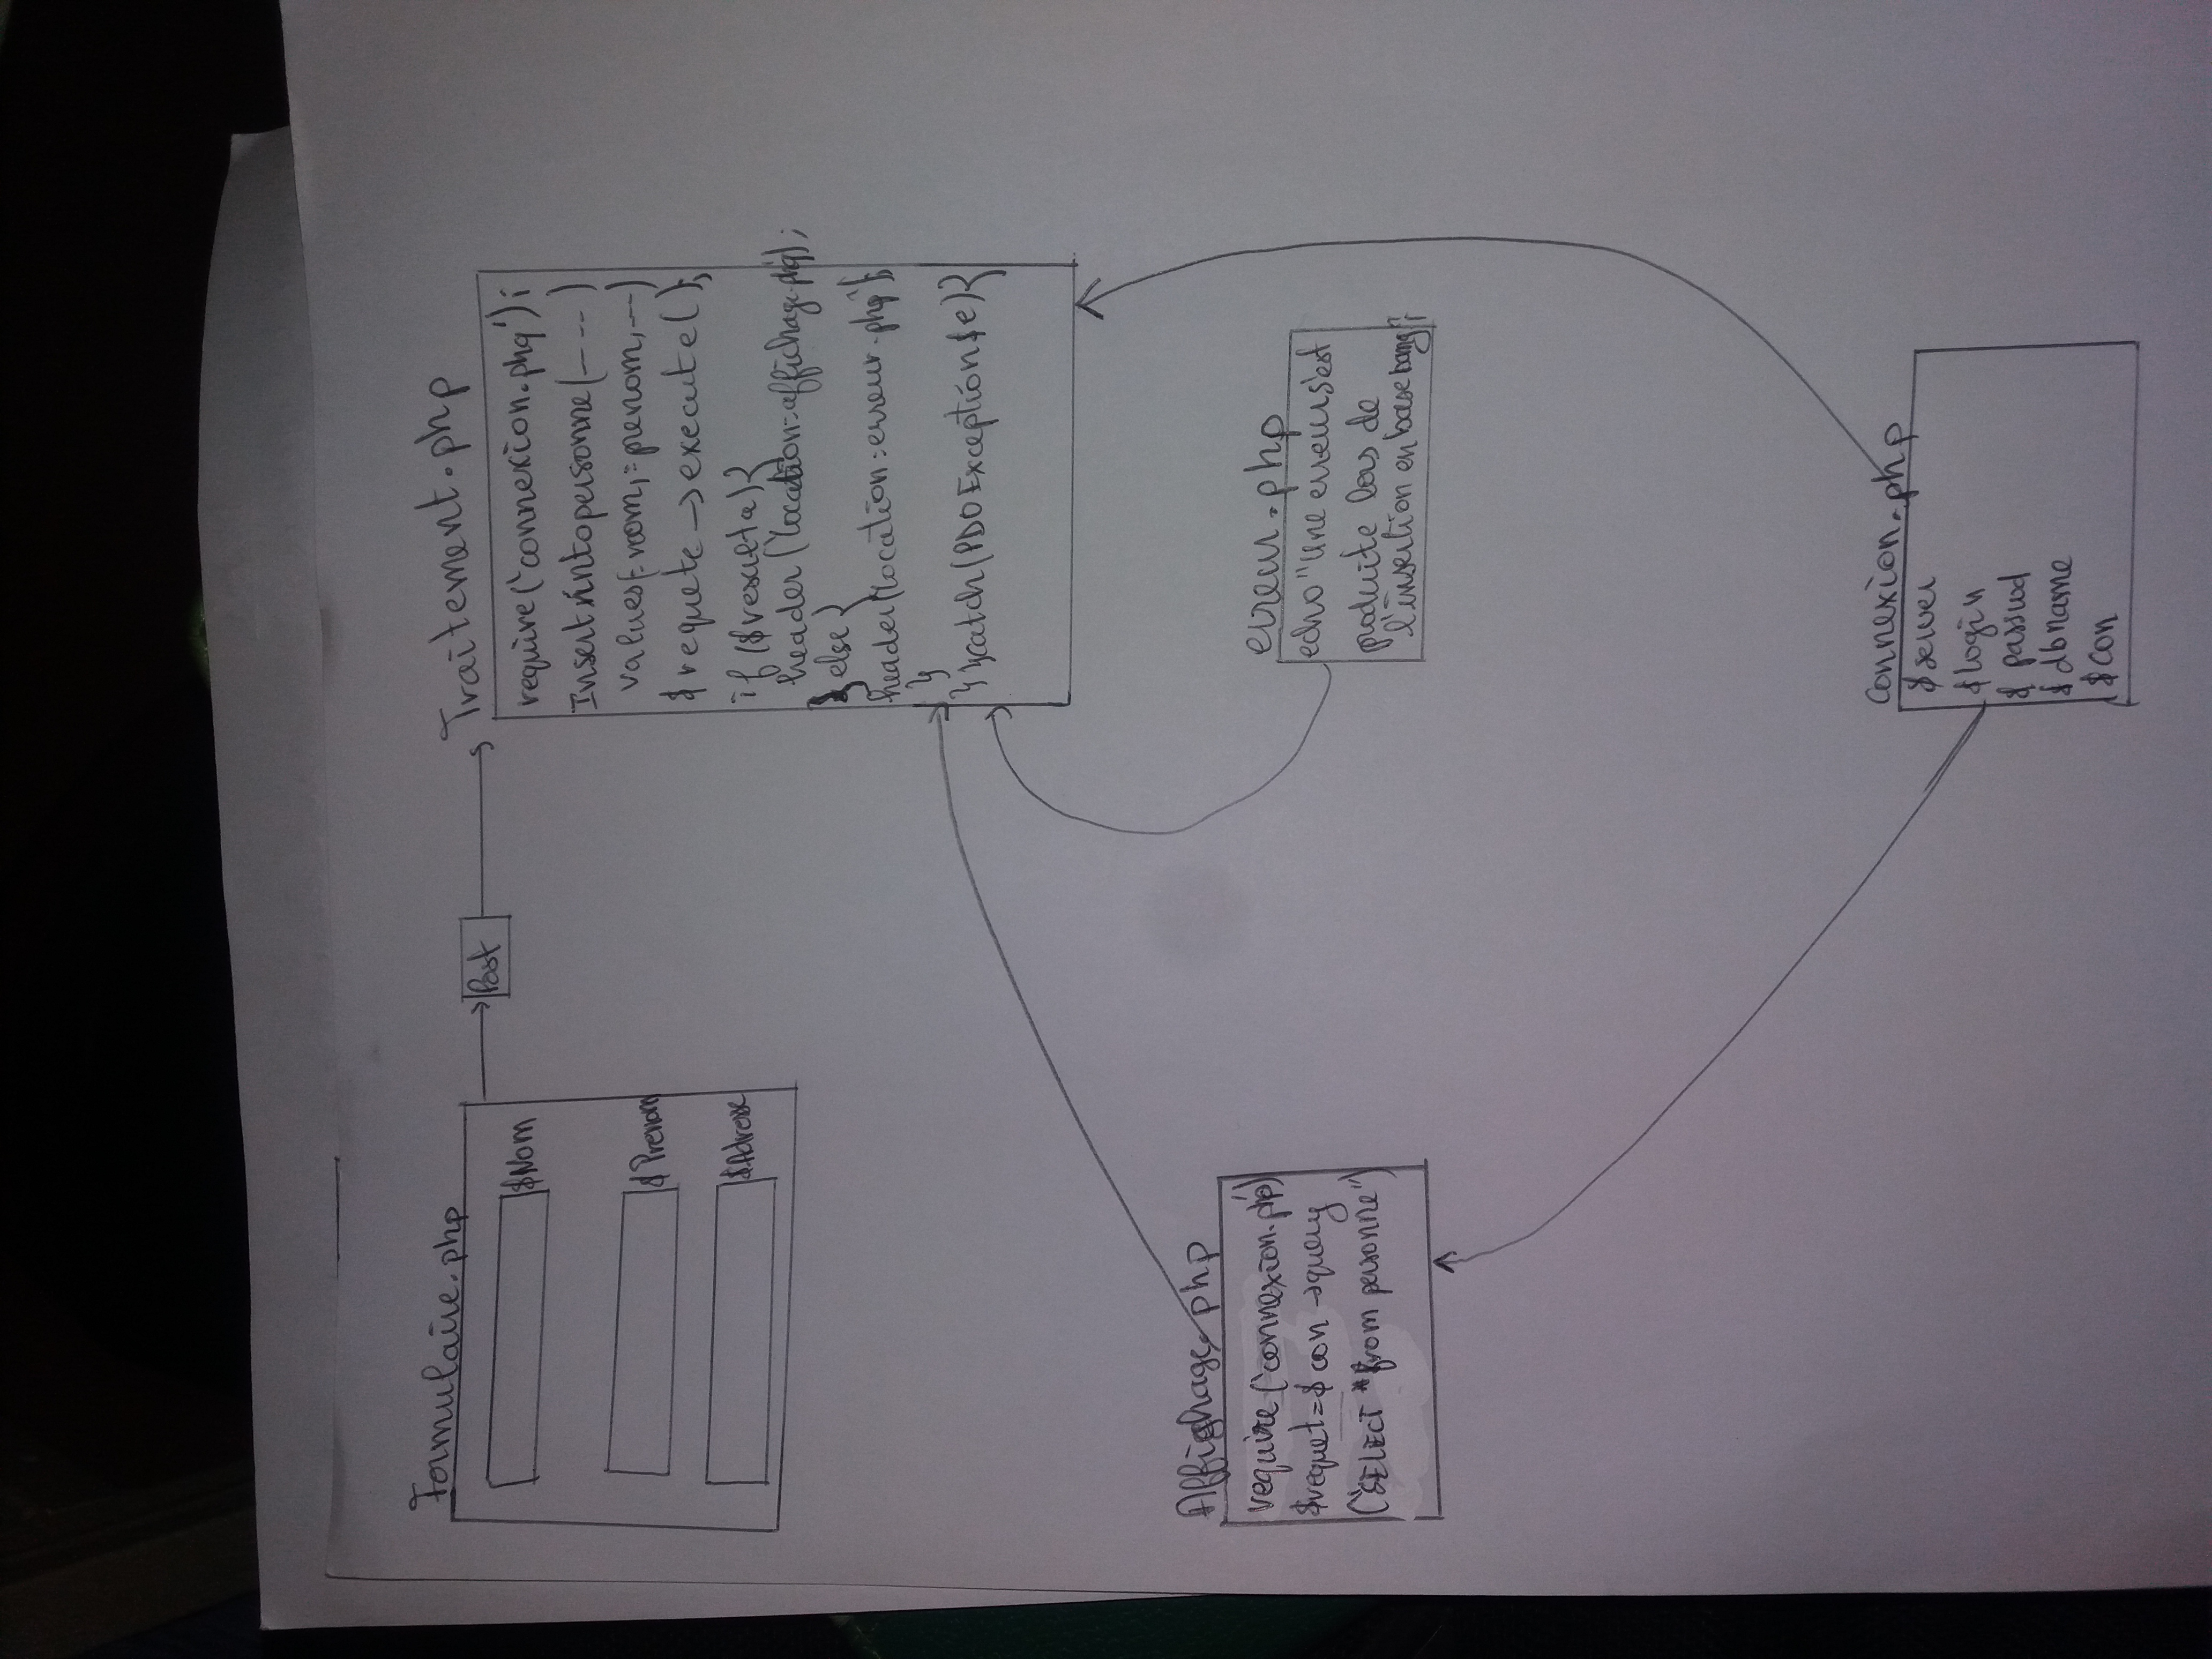 Formulaire.php
$Nom
$Prenom
$Adresse
Post
Traitement.php
require('connexion.php');
Insert into personne(----)
values(:nom,:prenom,---)
$requete->execute();
if($resulta){
header('location:affichage.php');
}else{
header('location:erreur.php');
}
}}catch(PDOException $e){
Affichage.php
require('connexion.php')
$requet=$con->query
("SELECT *from personne")
erreur.php
echo "Une erreur s'est
produite lors de
l'insertion en base
Connexion.php
$server
$login
$passwd
$dbname
$con